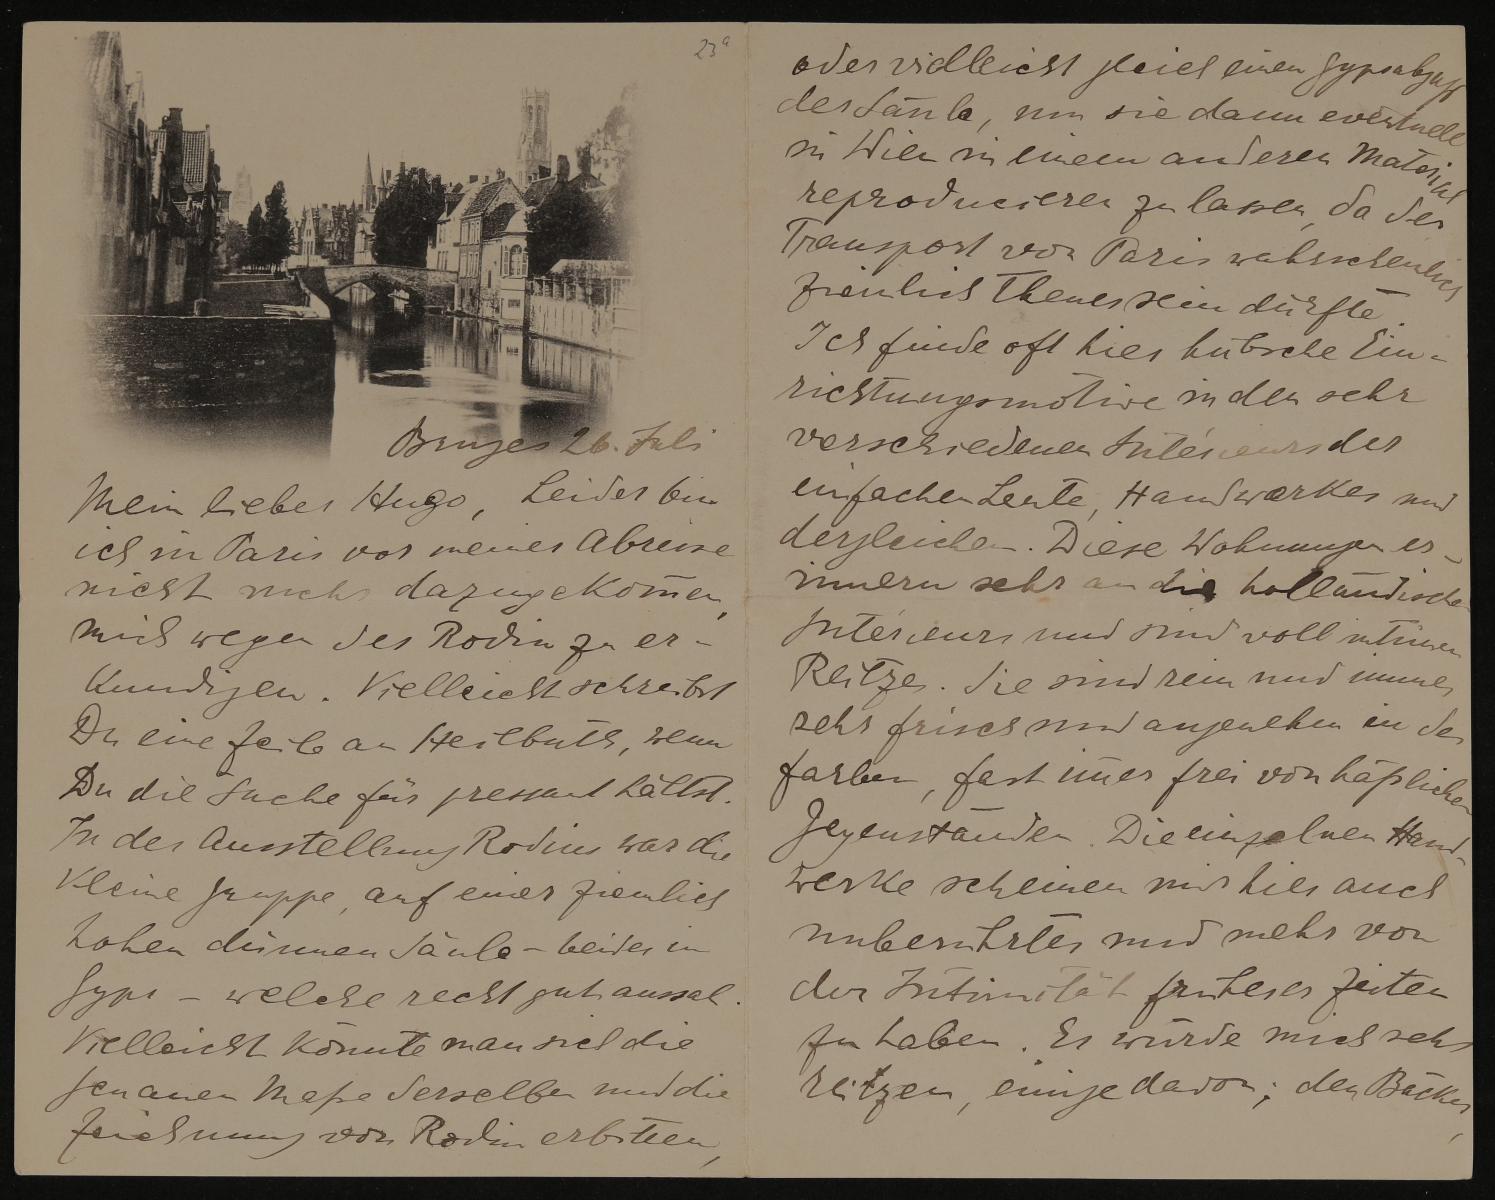 23a
Bruges 26. Juli
Mein lieber Hugo, Leider bin
ich in Paris vor meiner Abreise
nicht mehr dazugekom̄en,
mich wegen des Rodin zu er-
kundigen. Vielleicht schreibst
Du eine Zeile an Heilbuth, wenn
Du die Sache für pressant hältst.
In der Ausstellung Rodins war die
kleine Gruppe, auf einer ziemlich
hohen dünnen Säule – beides in
Gyps – welche recht gut aussah.
Vielleicht könnte man sich die
genauen Maße derselben und die
Zeichnung von Rodin erbitten,
oder vielleicht gleich einen Gypsabguß
der Säule, um sie dann eventuell
in Wien in einem anderen Material
reproducieren zu lassen, da der
Transport von Paris wahrscheinlich
ziemlich theuer sein dürfte.
Ich finde oft hier hübsche Ein-
richtungsmotive in den sehr
verschiedenen Intérieurs der
einfachen Leute, Handwerker und
dergleichen. Diese Wohnungen er-
innern sehr an die holländischen
Intérieurs und sind voll intimen
Reitzes. Sie sind rein und immer
sehr frisch und angenehm in der
Farben, fast im̄er frei von häßlichen
Gegenständen. Die einzelnen Hand-
werke scheinen mir hier auch
unberührter und mehr von
der Intimität früherer Zeiten
zu haben. Es würde mich sehr
reitzen, einige davon; den Bäcker,